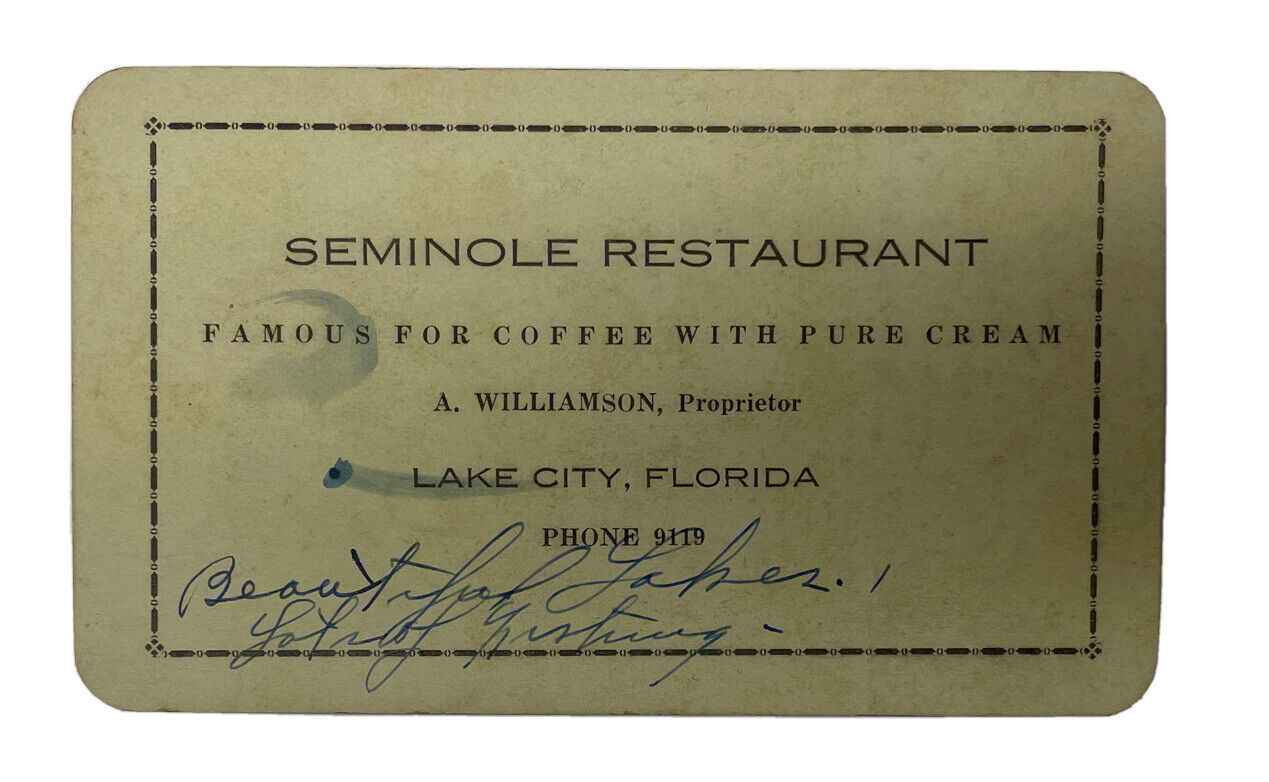 SEMINOLE RESTAURANT
FAMOUS FOR COFFEE WITH PURE CREAM
A. WILLIAMSON, Proprietor
LAKE CITY, FLORIDA
PHONE 9119
Beautiful Lakes.
Lots of Fishing -